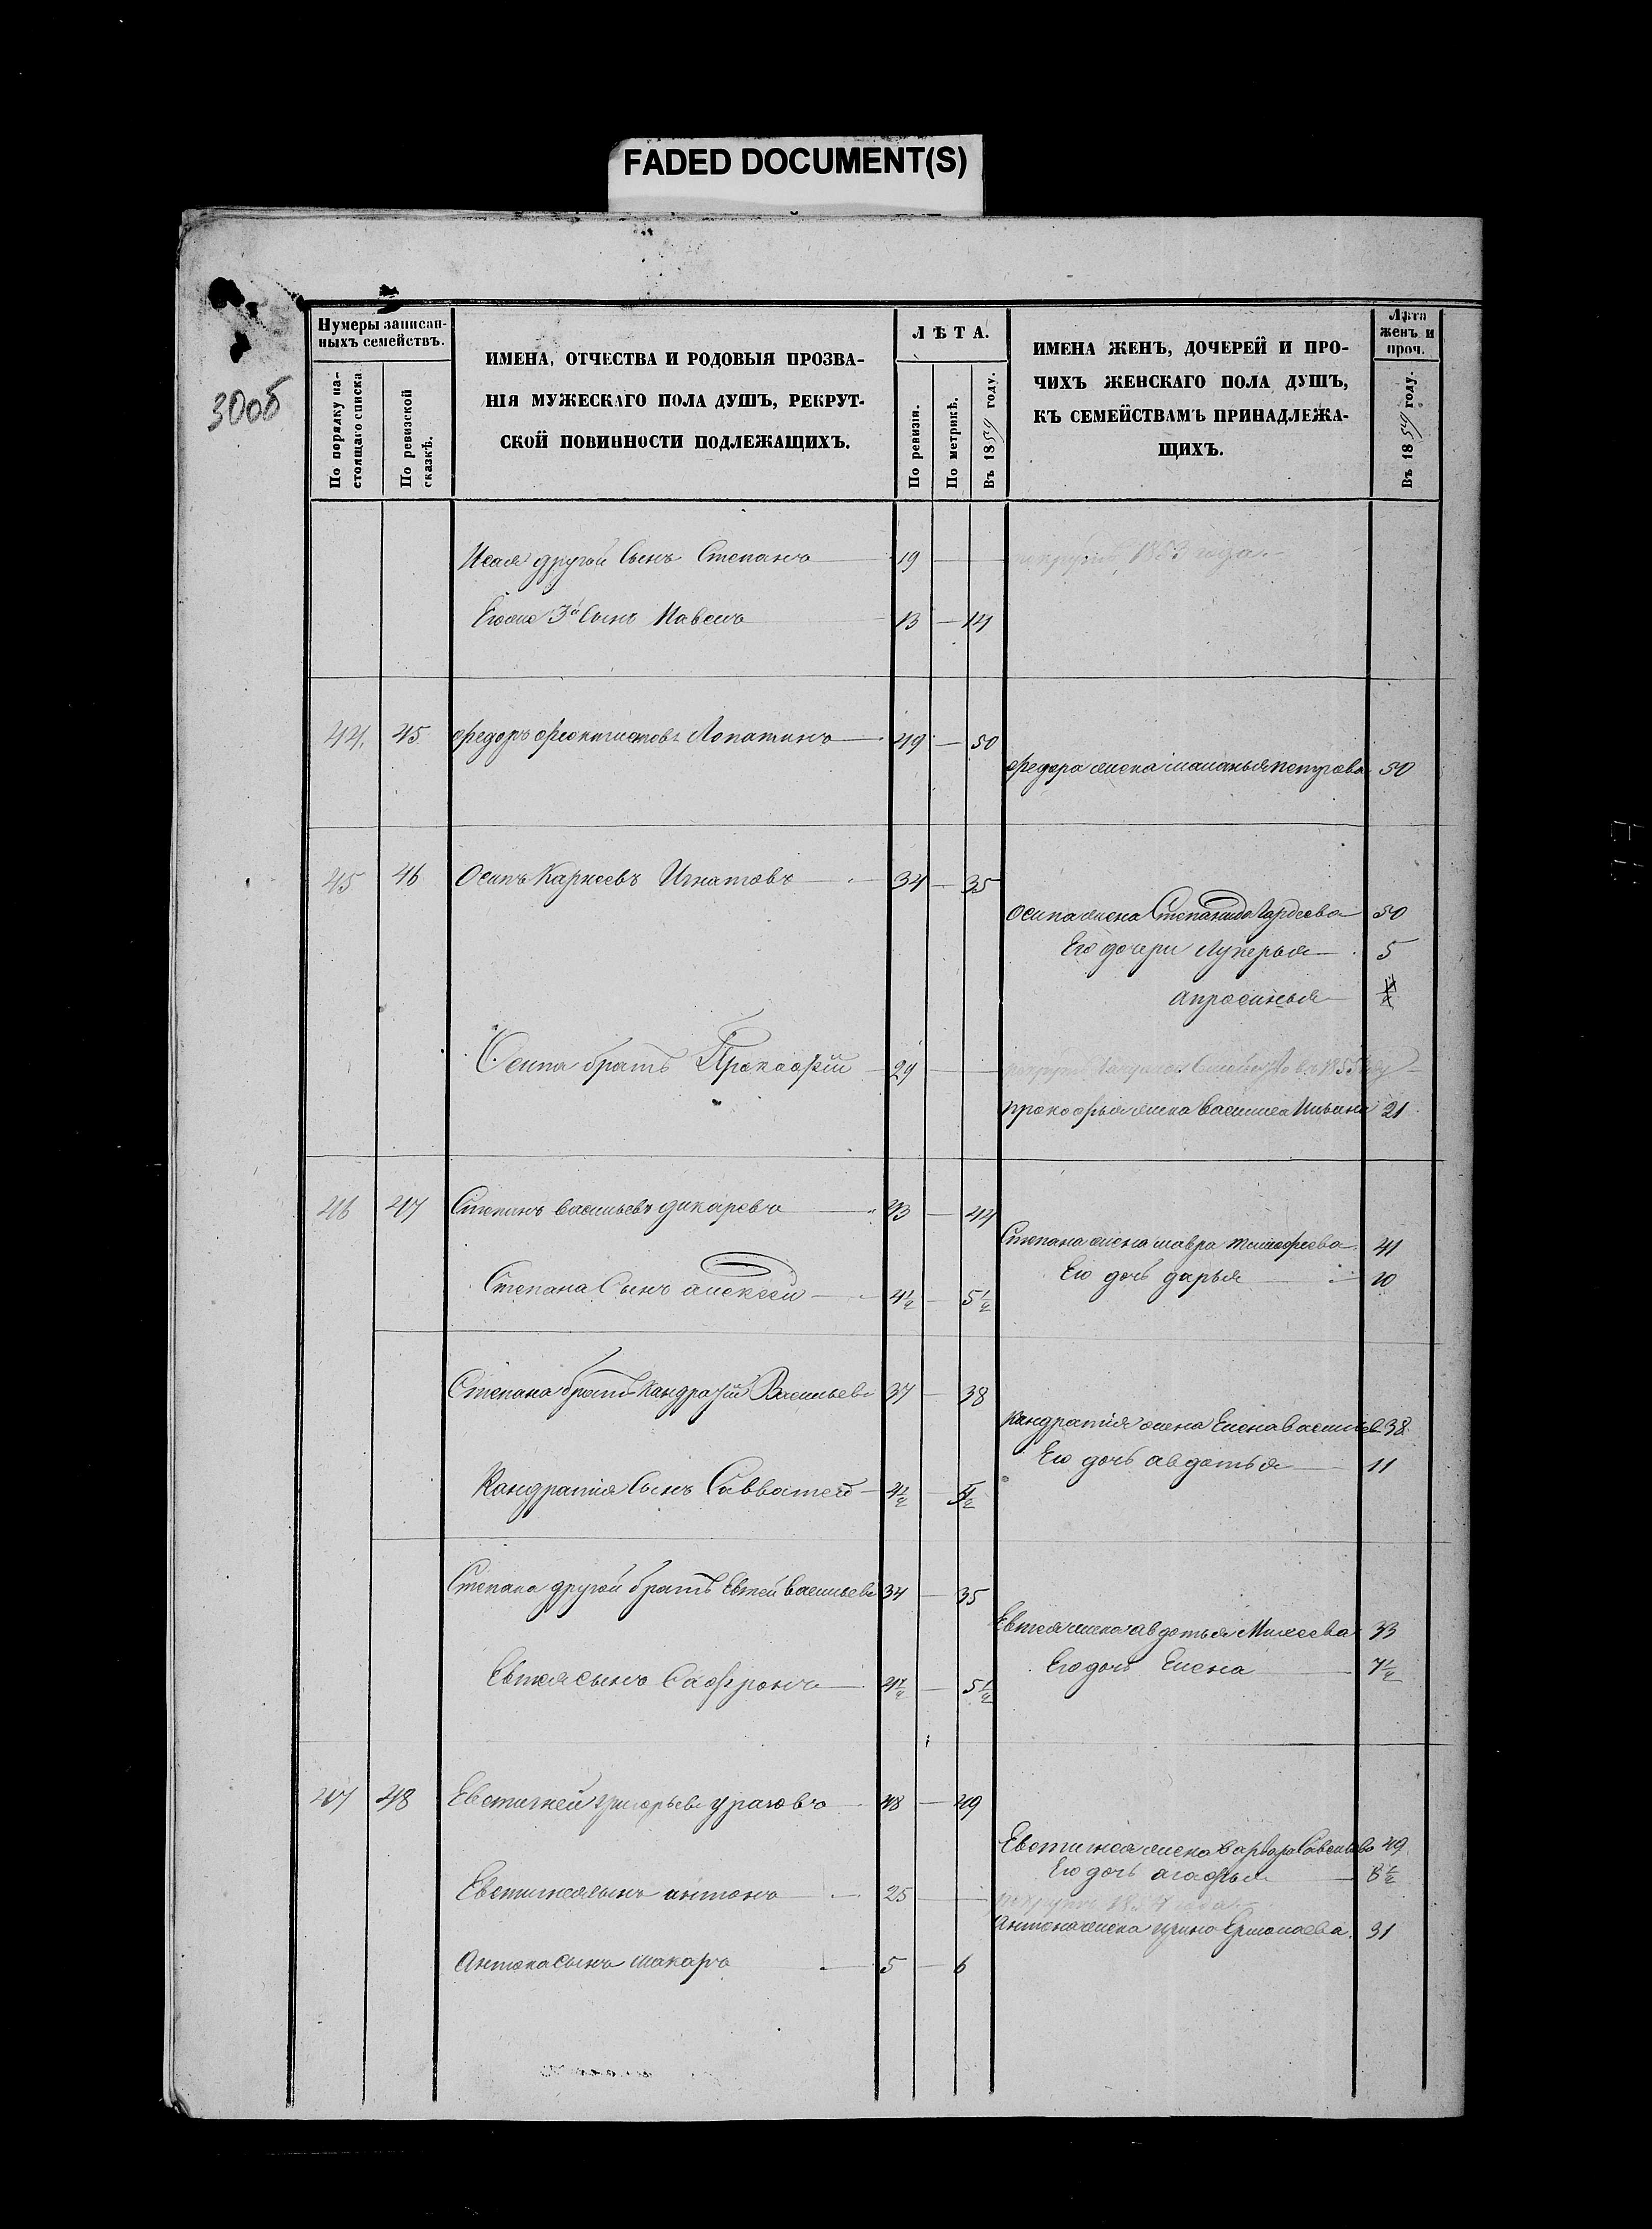 FADED DOCUMENT(S)
30об
Нумеры записан-
ныхъ семействъ.
По порядку на-
стоящаго списка
По ревизской
сказкѣ.
ИМЕНА, ОТЧЕСТВА И РОДОВЫЯ ПРОЗВА-
НІЯ МУЖЕСКАГО ПОЛА ДУШЪ, РЕКРУТ-
СКОЙ ПОВИННОСТИ ПОДЛЕЖАЩИХЪ.
ЛѢТА.
По ревизи.
По метрикѣ.
Въ 1859 году.
ИМЕНА ЖЕНЪ, ДОЧЕРЕЙ И ПРО-
ЧИХЪ ЖЕНСКАГО ПОЛА ДУШЪ,
КЪ СЕМЕЙСТВАМЪ ПРИНАДЛЕЖА-
ЩИХЪ.
Лѣта
женъ и
проч.
Въ 1859 году.
Исая другой Сынъ Степанъ 19 — 1853 года
3й Сынъ Павелъ 13 — 14
44. 45 федоръ феоктистовъ Лопатинъ 49 — 50
федора жена маланья петрова 50
45 46 Осипъ Карнеевъ Игнатовъ 34 — 35
Осипа жена Степанида Гардеева 50
Его дочери Лукерья 5
апросинья
Осипа братъ Прокофій 29 —
прокофья жена василиса Ильина 21
46 47 Степанъ васильевъ дикаревъ 43 — 44
Степана жена мавра тимофеева 41
Его дочь дарья 10
Степана Сынъ алексей 4½ — 5½
Степана братъ Кандратій Васильевъ 37 — 38
Кандратія жена Елена васильев 38
Его дочь авдотья 11
Кандратія Сынъ Савватей 4½ — 5½
Степана другой братъ Евтей васильевъ 34 — 35
Евтея жена авдотья Михеева 33
Его дочь Елена 7½
Евтея сынъ Сафронъ 4½ — 5½
47 48 Евстигней григорьевъ ураковъ 48 — 49
Евстигнея жена варвара Савельева 49
Его дочь агафья 8½
Евстигнея сынъ антонъ 25 —
Антона жена ирина Ермолаева 31
Антона сынъ макаръ 5 — 6